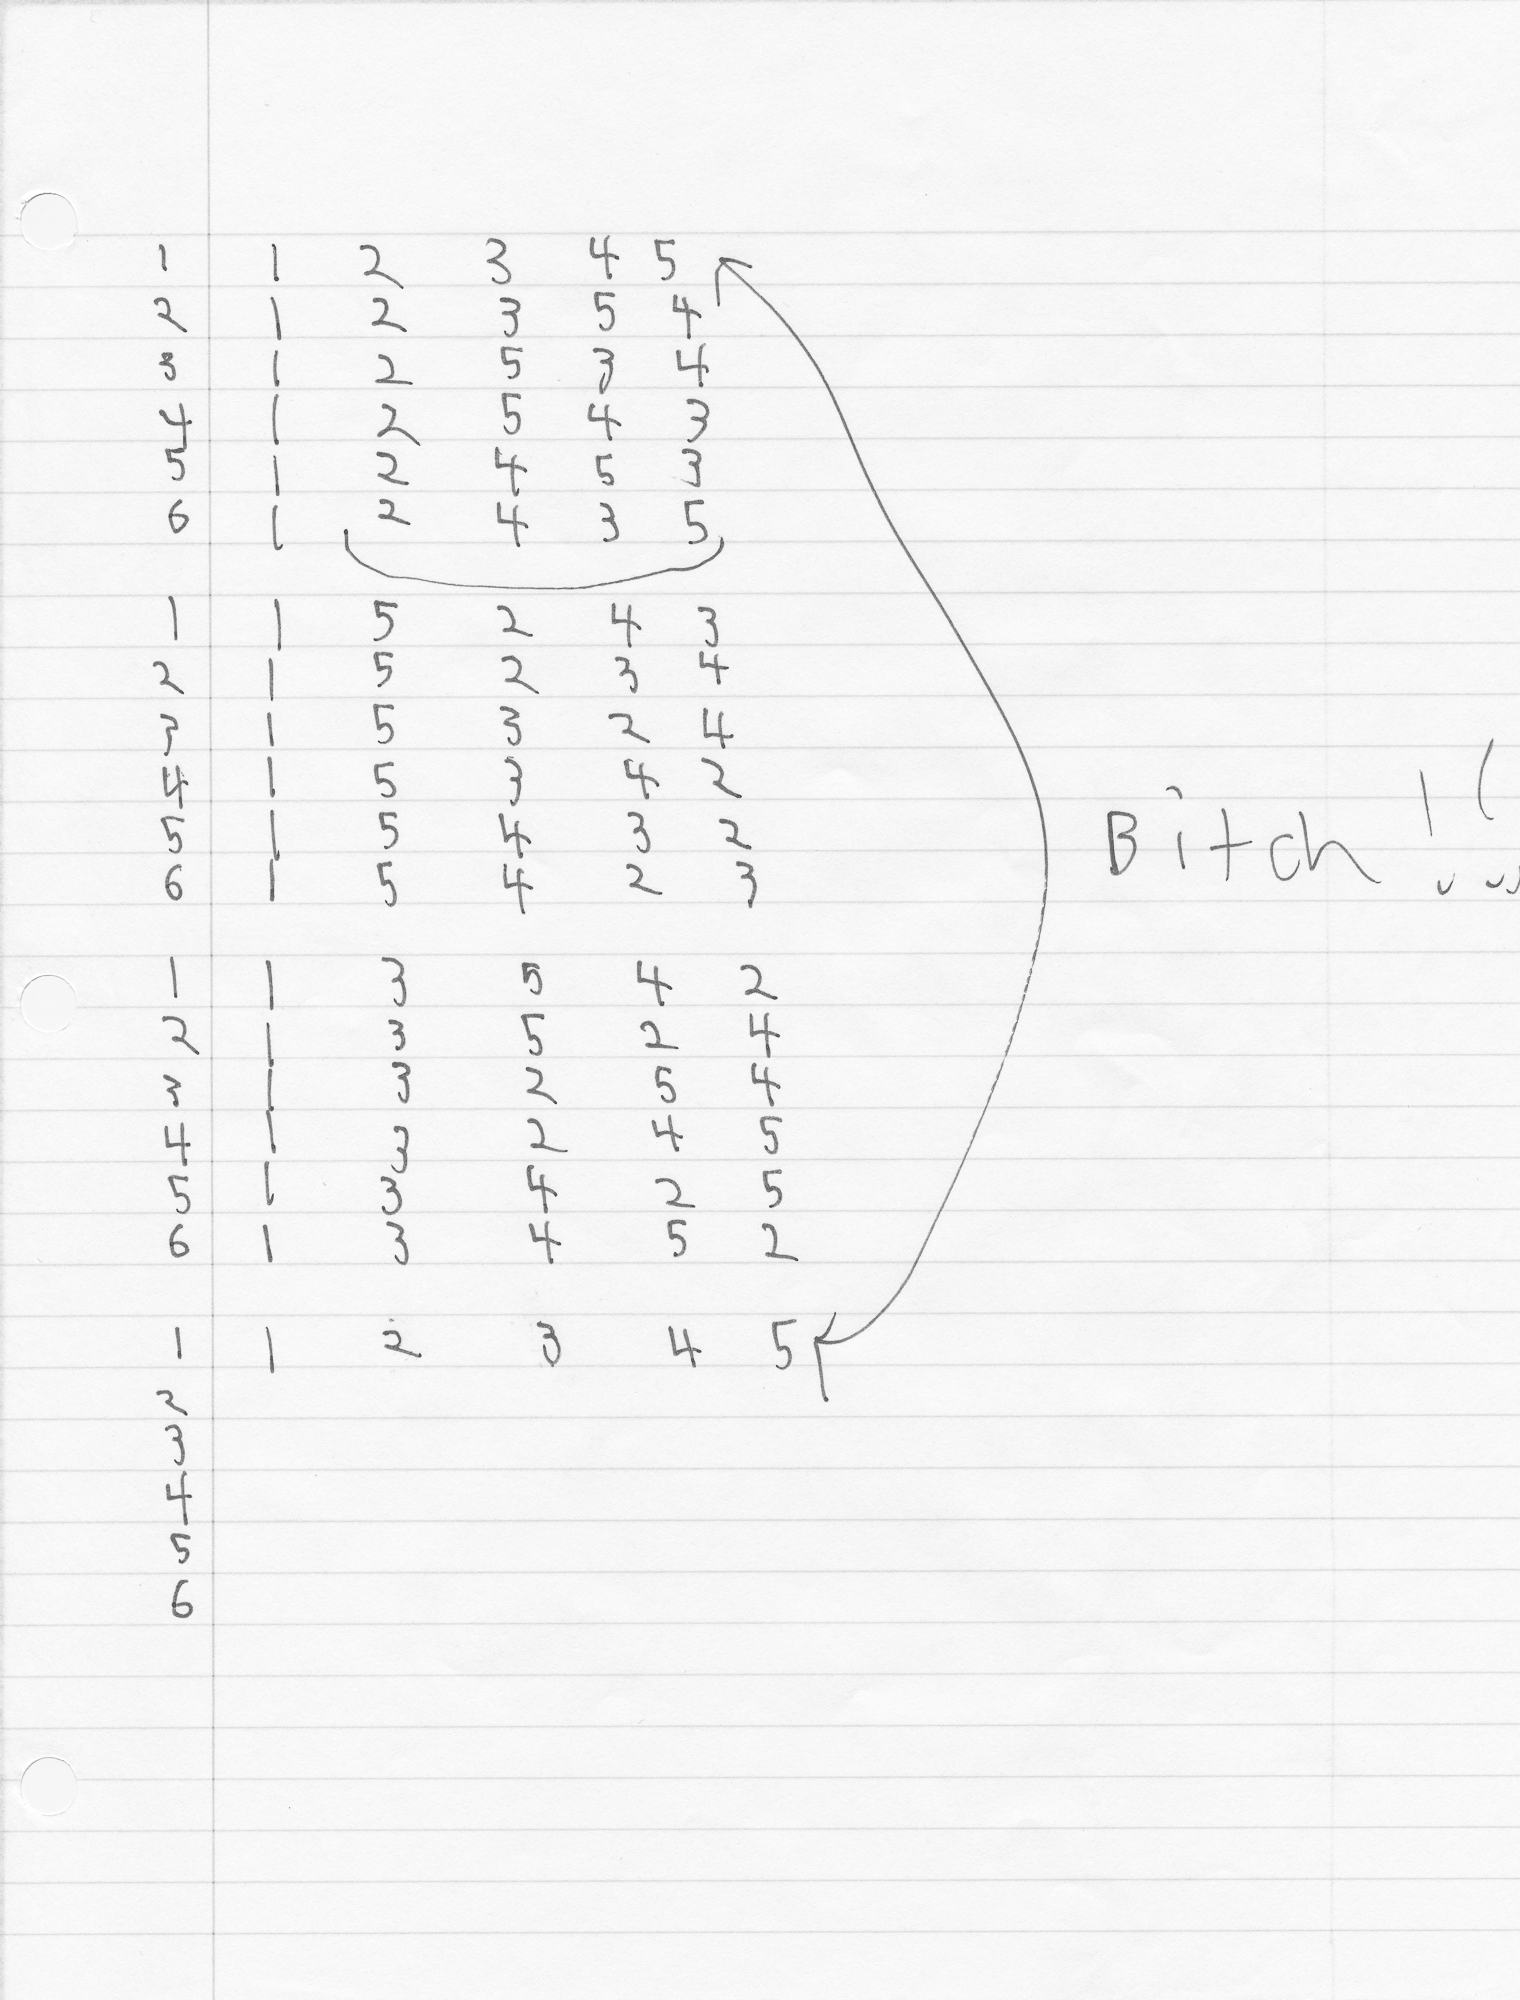 1 1 2 3 4 5
2 1 2 3 5 4
3 1 2 5 3 4
4 1 2 5 4 3
5 1 2 4 5 3
6 1 2 4 3 5
1 1 5 2 4 3
2 1 5 2 3 4
3 1 5 3 2 4
4 1 5 3 4 2
5 1 5 4 3 2
6 1 5 4 2 3
Bitch !!
1 1 3 5 4 2
2 1 3 5 2 4
3 1 3 2 5 4
4 1 3 2 4 5
5 1 3 4 2 5
6 1 3 4 5 2
1 1 2 3 4 5
2
3
4
5
6